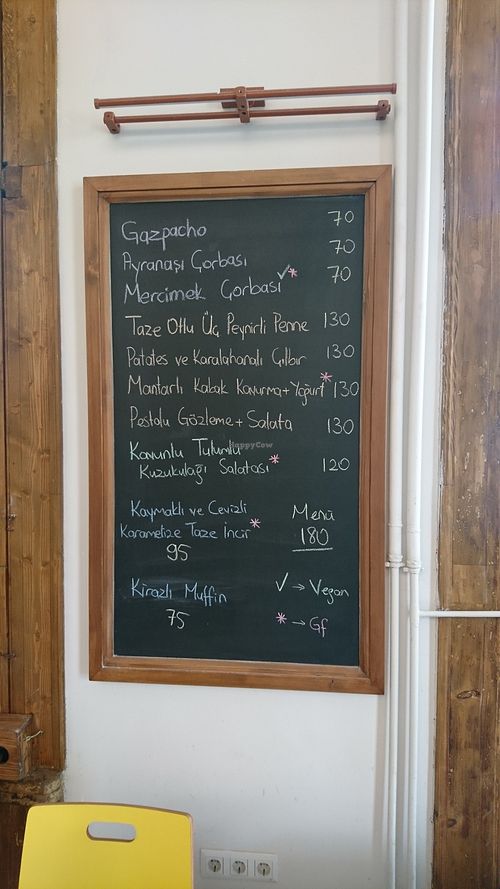 Gazpacho 70
Ayranaşı Çorbası 70
Mercimek Çorbası ✓* 70
Taze Otlu Üç Peynirli Penne 130
Patates ve Karalahanalı Çılbır 130
Mantarlı Kabak Kavurma + Yoğurt * 130
Pastalı Gözleme + Salata 130
Kavunlu Tulumlu
Kuzukulağı Salatası * 120
Kaymaklı ve Cevizli
Karamelize Taze İncir *
95
Menü
180
Kirazlı Muffin
75
✓ → Vegan
* → Gf
HappyCow